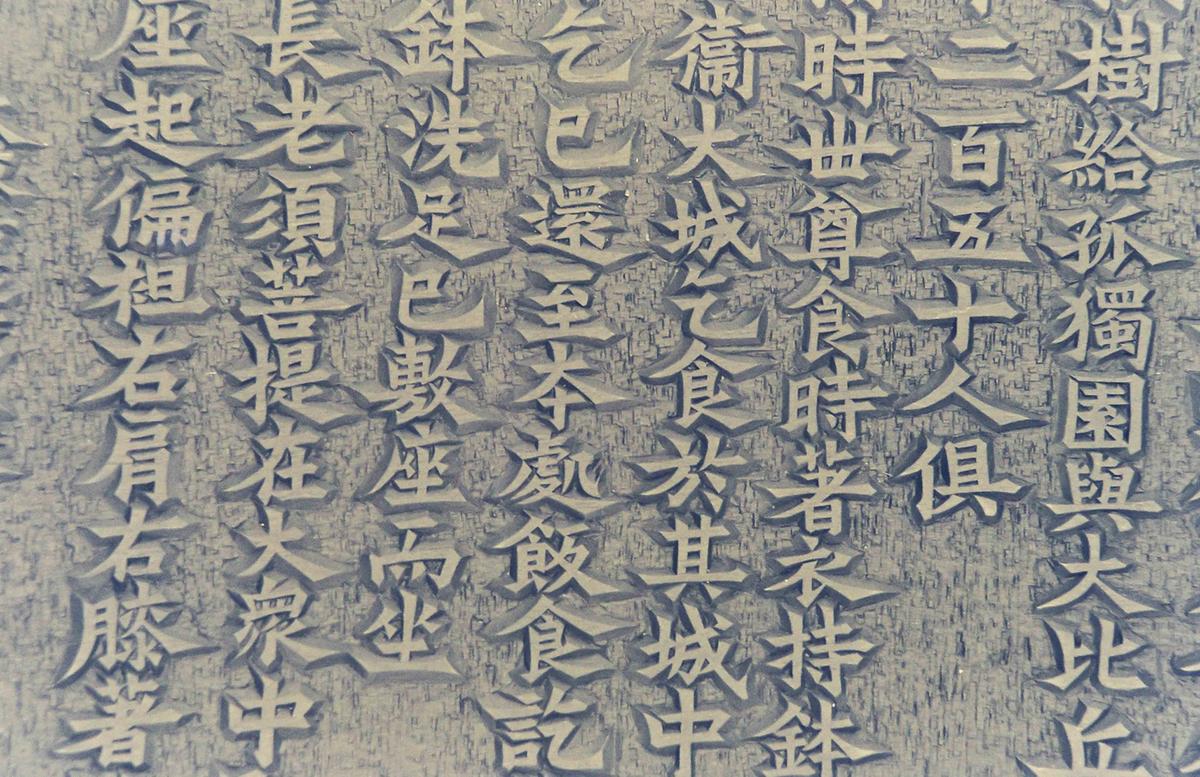 樹給孤獨園與大比丘
二百五十人俱
時丗尊食時著衣持鉢
衞大城乞食於其城中
乞已還至本處飯食訖
鉢洗足已敷座而坐
長老須菩提在大衆中
座起偏袒右肩右膝著